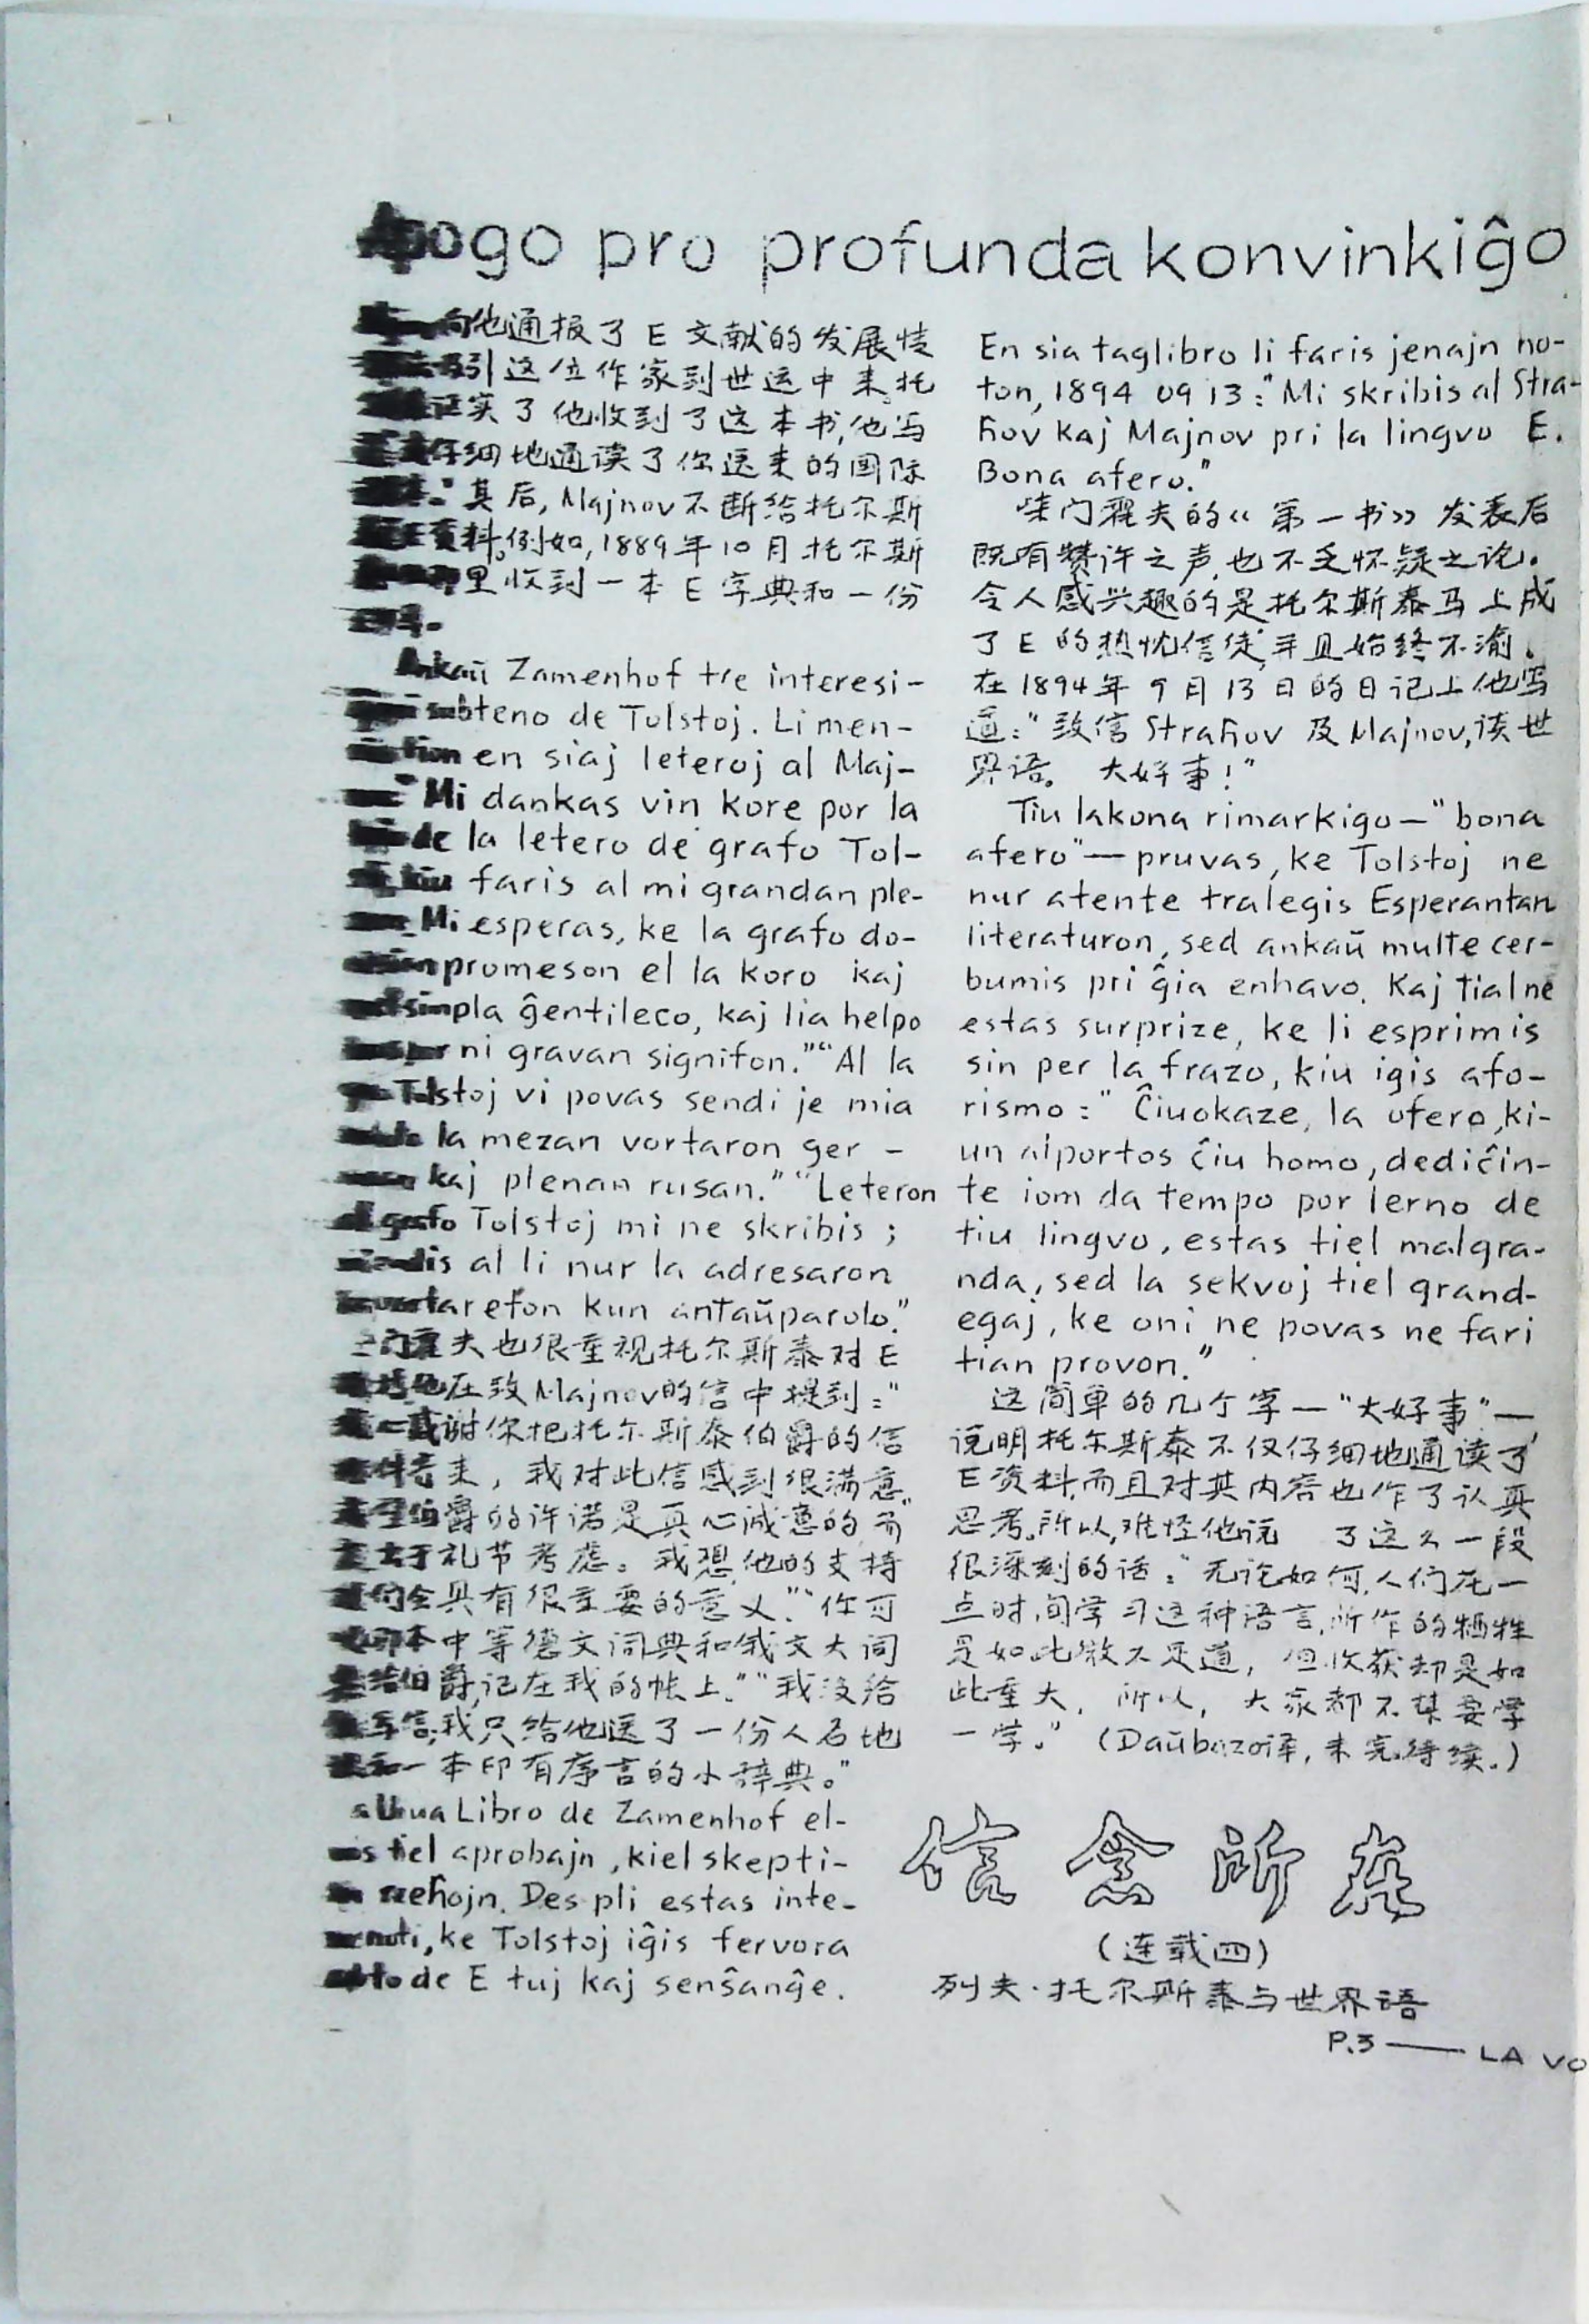 pro profunda konvinkiĝo
他通报了 E 文献的发展情
引这位作家到世运中来。托
实了他收到了这本书,他写
仔细地通读了你送来的国际
其后, Majnov 不断给托尔斯
资料。例如, 1889年10月托尔斯
里收到一本 E 字典和一份
Ankaŭ Zamenhof tre interesi-
subteno de Tolstoj. Li men-
en siaj leteroj al Maj-
" Mi dankas vin kore por la
de la letero de grafo Tol-
kiu faris al mi grandan ple-
Mi esperas, ke la grafo do-
promeson el la koro kaj
simpla ĝentileco, kaj lia helpo
por ni gravan signifon." "Al la
Tolstoj vi povas sendi je mia
la mezan vortaron ger -
kaj plenan rusan." "Leteron
al grafo Tolstoj mi ne skribis ;
al li nur la adresaron
kun antaŭparolo."
夫也很重视托尔斯泰对 E
他在致Majnov的信中提到:"
感谢你把托尔斯泰伯爵的信
来, 我对此信感到很满意。
伯爵的许诺是真心诚意的,而
于礼节考虑。我想,他的支持
具有很重要的意义。" "你可
本中等德文词典和俄文大词
给伯爵,记在我的帐上。" "我没给
写信,我只给他送了一份人名地
一本印有序言的小辞典。"
Unua Libro de Zamenhof el-
tiel aprobajn , kiel skepti-
Des pli estas inte-
ke Tolstoj iĝis fervora
de E tuj kaj senŝanĝe.
En sia taglibro li faris jenajn no-
ton, 1894 09 13 : "Mi skribis al Stra-
ĥov kaj Majnov pri la lingvo E.
Bona afero."
柴门霍夫的《第一书》发表后
既有赞许之声,也不乏怀疑之论。
令人感兴趣的是托尔斯泰马上成
了 E 的热忱信徒,并且始终不渝。
在1894年9月13日的日记上他写
道:"致信 Straĥov 及 Majnov,谈世
界语。 大好事!"
Tiu lakona rimarkigo — "bona
afero" — pruvas, ke Tolstoj ne
nur atente tralegis Esperantan
literaturon, sed ankaŭ multe cer-
bumis pri ĝia enhavo. Kaj tial ne
estas surprize, ke li esprimis
sin per la frazo, kiu igis afo-
rismo : " Ĉiuokaze, la ofero, ki-
un alportos ĉiu homo, dediĉin-
te iom da tempo por lerno de
tiu lingvo, estas tiel malgra-
nda, sed la sekvoj tiel grand-
egaj, ke oni ne povas ne fari
tian provon."
这简单的几个字—"大好事"—
说明托尔斯泰不仅仔细地通读了
E 资料,而且对其内容也作了认真
思考。所以,难怪他说 了这么一段
很深刻的话:"无论如何,人们花一
点时间学习这种语言,所作的牺牲
是如此微不足道, 但收获却是如
此重大, 所以, 大家都不禁要学
一学。" (Daŭbazo译, 未完待续.)
信念所在
(连载四)
列夫·托尔斯泰与世界语
P.3 — LA VO